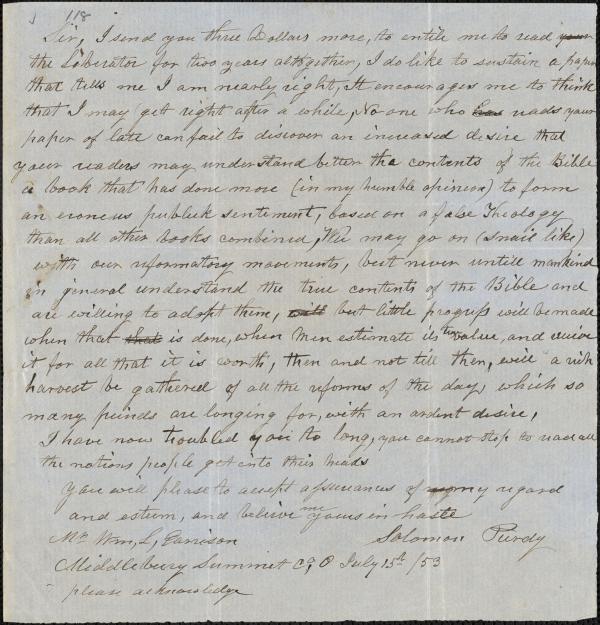 118
Sir, I send you three Dollars more, to entitle me to read your
the Liberator for two years altogether, I do like to sustain a paper
that tells me I am nearly right, It encourages me to think
that I may get right after a while, No one who has reads your
paper of late can fail to discover an increased desire that
your readers may understand better the contents of the Bible
a book that has done more (in my humble opinion) to form
an eroneus publick sentiment, based on a false Theology
than all other books combined, We may go on (snail like)
with our reformatory movements, but never untill mankind
in general understand the true contents of the Bible and
are willing to adopt them, will but little progress will be made
when that that is done, when men estimate its true value, and receive
it for all that it is worth, then and not till then, will a rich
harvest be gathered of all the reforms of the day, which so
many friends are longing for, with an ardent desire,
I have now troubled you to long, you cannot stop to read all
the notions people get into their heads
You will please to accept assurances of my regard
and esteem, and believe me yours in haste
Mr Wm, L, Garrison Solomon Purdy
Middlebury Summit Co, O July 15th /53
please acknowledge